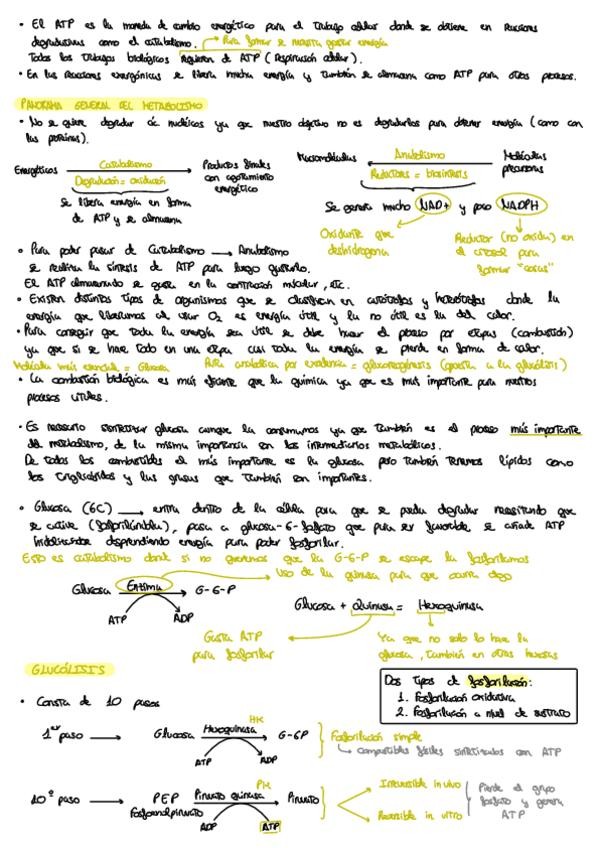 • El ATP es la moneda de cambio energético para el trabajo celular donde se obtiene en reacciones
degradativas como el catabolismo. → Para formar se necesita gastar energía
Todos los trabajos biológicos requieren de ATP (Respiración celular).
• En las reacciones exergónicas se libera mucha energía y también se almacena como ATP para otros procesos.
PANORAMA GENERAL DEL METABOLISMO
• No se quiere degradar ác. nucleicos ya que nuestro objetivo no es degradarlos para obtener energía (como con
las proteínas).
Energéticos Catabolismo Productos finales
Degradación = oxidación con agotamiento
energético
Se libera energía en forma
de ATP y se almacena
Macromoléculas Anabolismo Moléculas
Reductores = biosíntesis precursoras
Se genera mucho NAD+ y poco NADPH
Oxidante que
deshidrogena
Reductor (no oxida) en
el citosol para
formar "cosas"
• Para poder pasar de Catabolismo → Anabolismo
se realiza la síntesis de ATP para luego gastarlo.
El ATP almacenado se gasta en la contracción muscular, etc.
• Existen distintos tipos de organismos que se clasifican en autótrofos y heterótrofos donde la
energía que liberamos al usar O2 es energía útil y la no útil es la del calor.
• Para conseguir que toda la energía sea útil se debe hacer el proceso por etapas (combustión)
ya que si se hace todo en una etapa casi toda la energía se pierde en forma de calor.
Molécula más esencial = Glucosa Ruta anabólica por excelencia = gluconeogénesis (opuesta a la glucólisis)
• La combustión biológica es más eficiente que la química ya que es más importante para nuestros
procesos vitales.
• Es necesario sintetizar glucosa aunque la consumamos ya que también es el proceso más importante
del metabolismo, de la misma importancia son los intermediarios metabólicos.
De todos los combustibles el más importante es la glucosa pero también tenemos lípidos como
los triglicéridos y las grasas que también son importantes.
• Glucosa (6C) → entra dentro de la célula para que se pueda degradar necesitando que
se active (fosforilándola), pasa a glucosa-6-fosfato que para ser favorable se añade ATP
hidrolizándose desprendiendo energía para poder fosforilar.
Esto es catabolismo donde si no queremos que la G-6-P se escape la fosforilamos
Uso de la quinasa para que ocurra algo
Glucosa Enzima G-6-P
ATP ADP
Glucosa + Quinasa = Hexoquinasa
Gasta ATP
para fosforilar
Ya que no solo lo hace la
glucosa, también en otras hexosas
GLUCÓLISIS
• Consta de 10 pasos
Dos tipos de fosforilación:
1. Fosforilación oxidativa
2. Fosforilación a nivel de sustrato
HK
1er paso → Glucosa Hexoquinasa G-6P
ATP ADP
Fosforilación simple
combustibles fósiles sintetizados con ATP
PK
10º paso → PEP Piruvato quinasa Piruvato
Fosfoenolpiruvato
ADP ATP
Irreversible in vivo
Reversible in vitro
Pierde el grupo
fosfato y genera
ATP